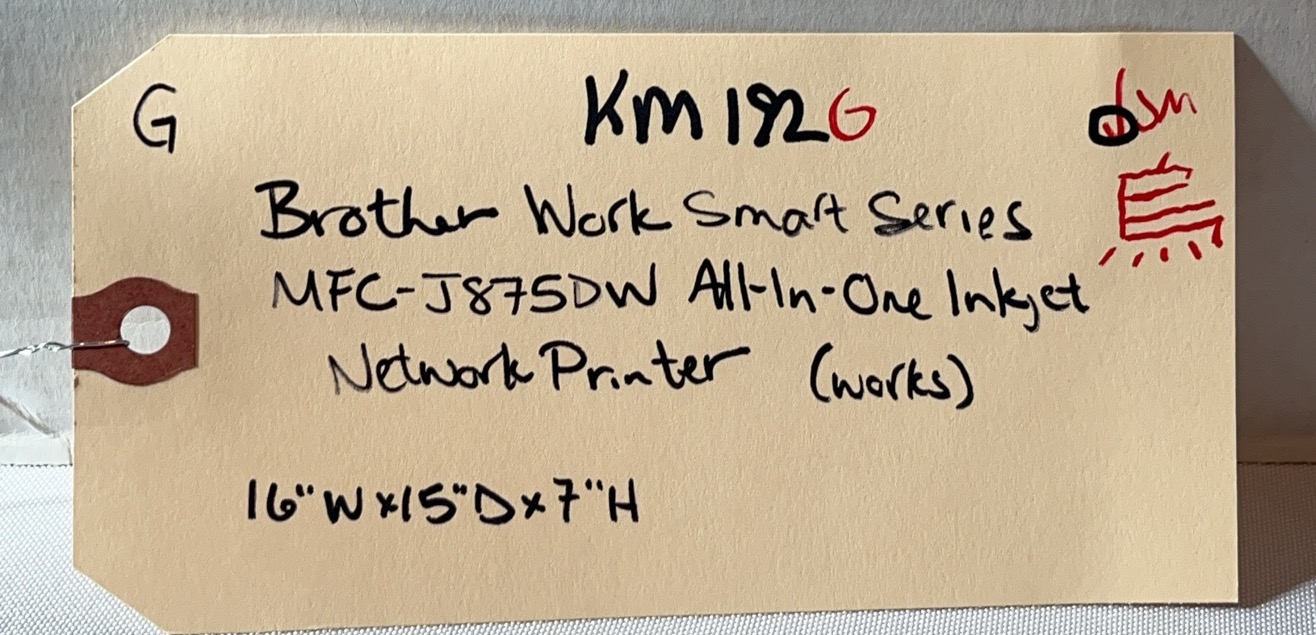 G
KM192G
Brother Work Smart Series
MFC-J875DW All-In-One Inkjet
Network Printer (works)
16"W x 15"D x 7"H